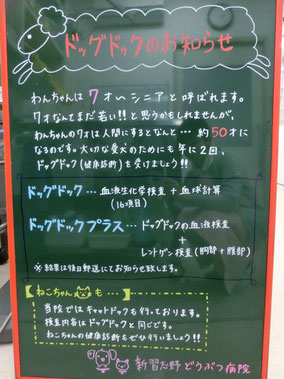 ドッグドックのお知らせ
わんちゃんは 7才〜シニアと呼ばれます。
7才なんてまだ若い!!と思うかもしれませんが、
わんちゃんの7才は人間にするとなんと… 約50才に
なるのです。大切な愛犬のためにも年に2回、
ドッグドック(健康診断)を受けましょう!!
ドッグドック … 血液生化学検査 + 血球計算
(16項目)
ドッグドックプラス … ドッグドックの血液検査
+
レントゲン検査(胸部+腹部)
※ 結果は後日郵送にてお知らせ致します。
【ねこちゃんも…】
当院ではキャットドックも行っております。
検査内容はドッグドックと同じです。
ねこちゃんの健康診断もぜひ行いましょう!!
新習志野どうぶつ病院